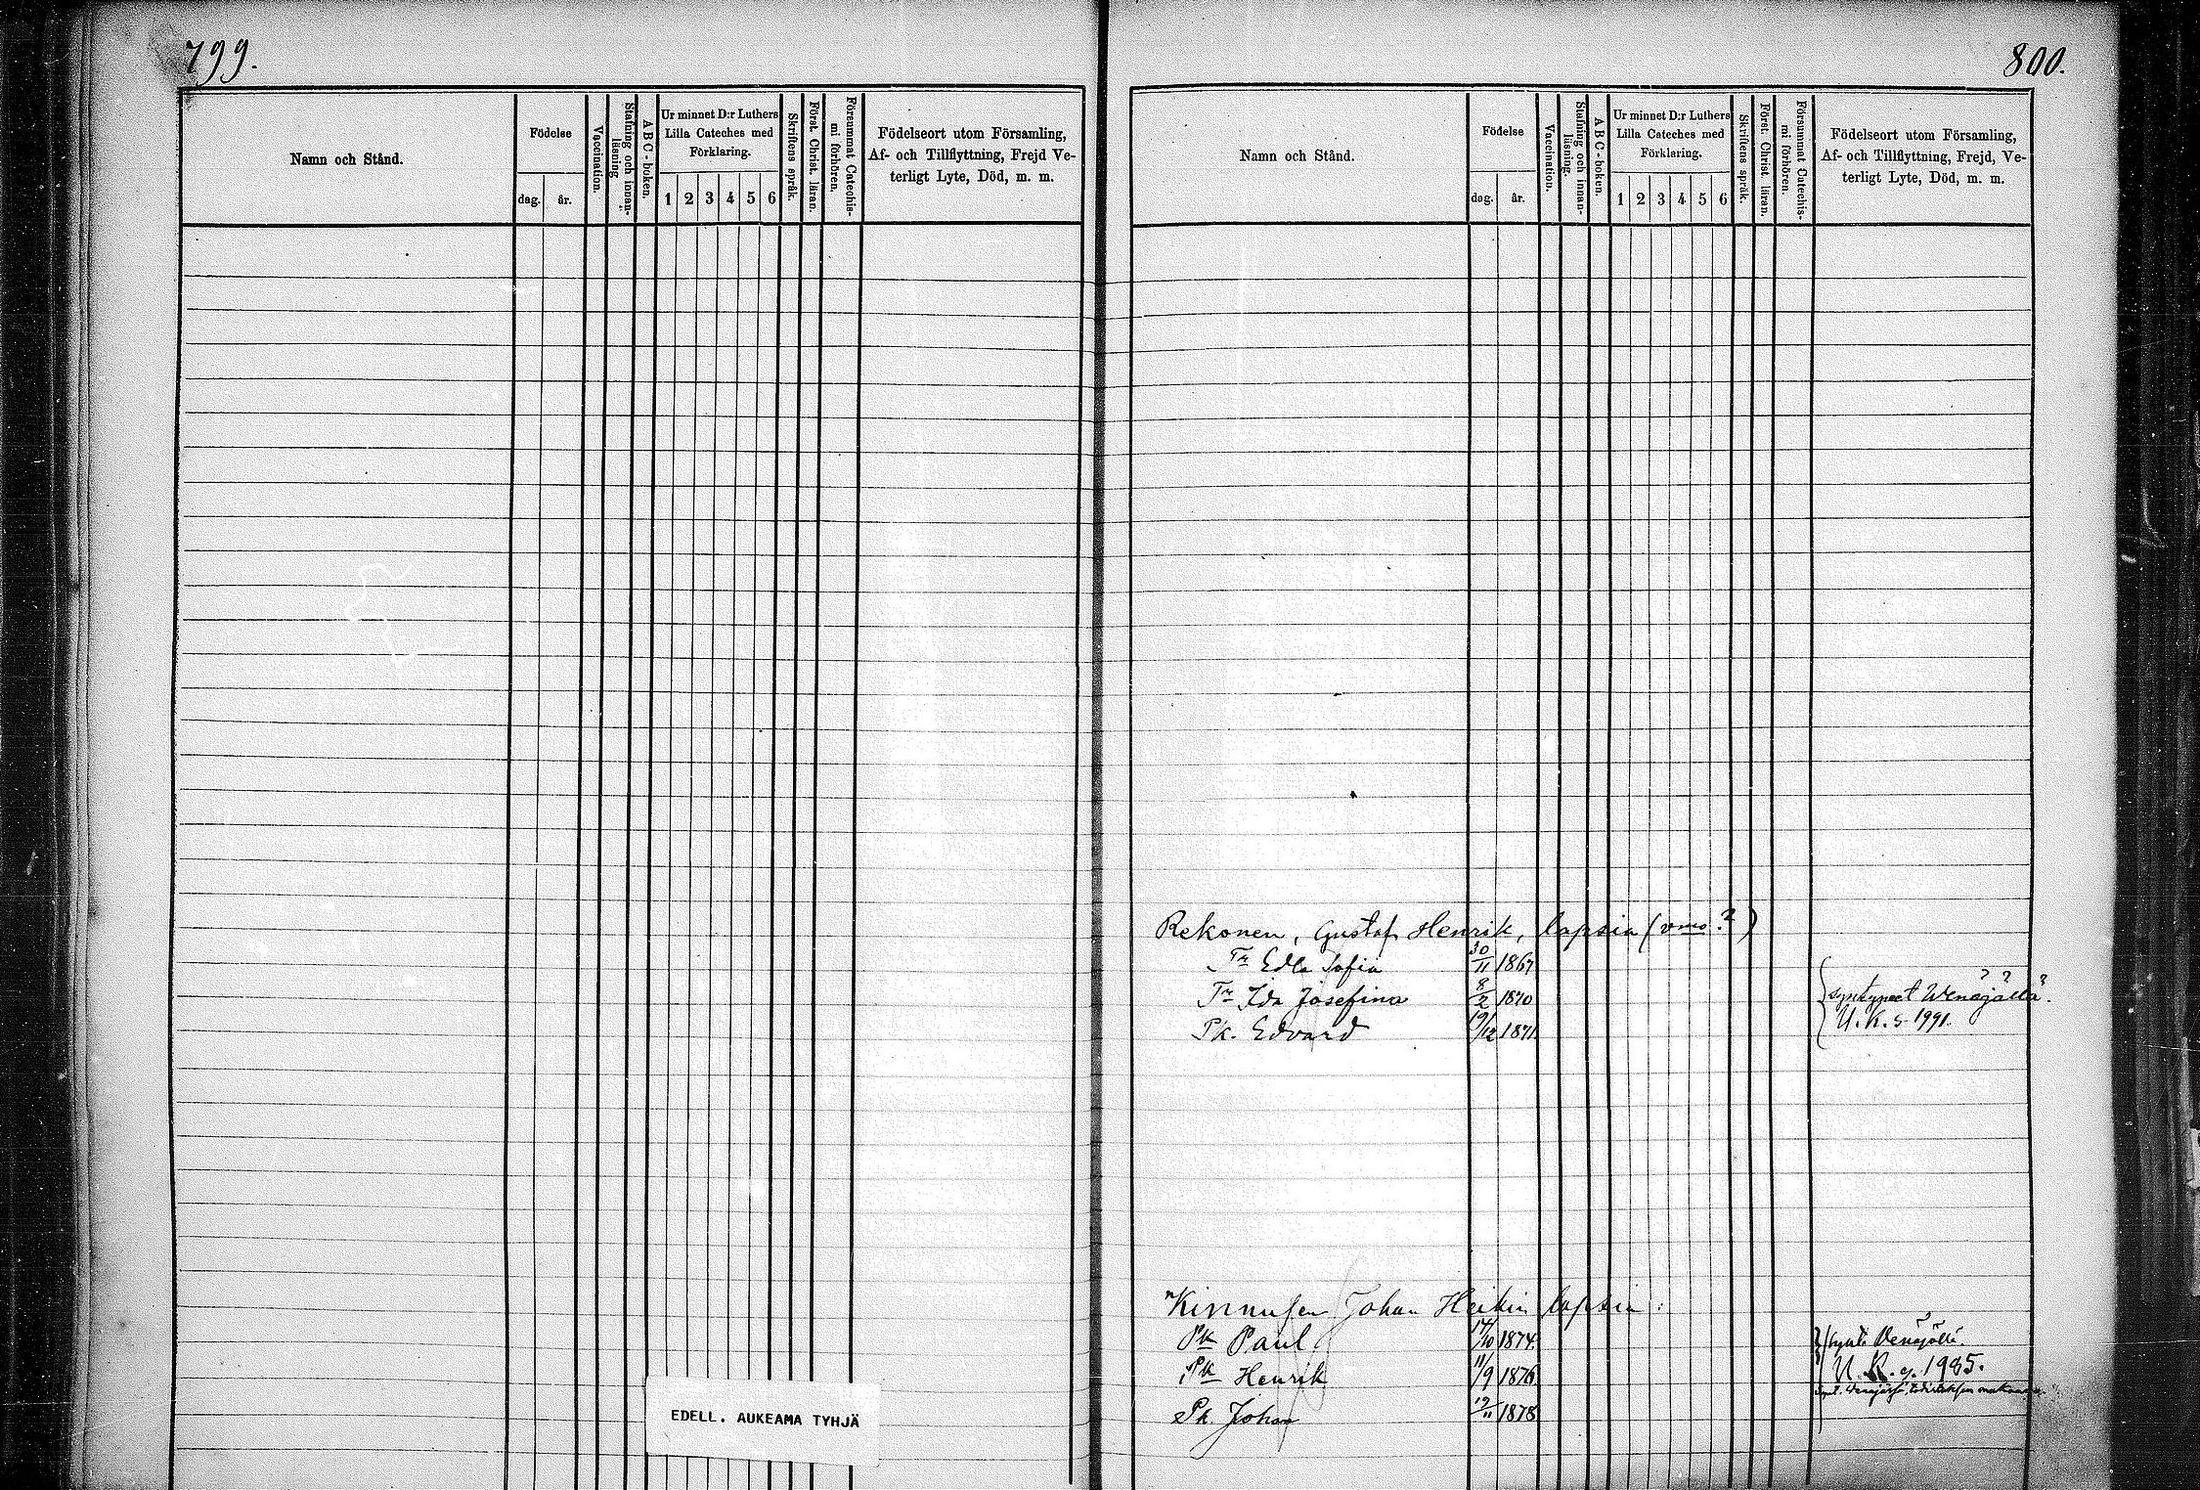 799.
Namn och Stånd.
Födelse
dag.
år.
Vaccination.
Stafning och innan-
läsning
A B C - boken.
Ur minnet D:r Luthers
Lilla Cateches med
Förklaring.
1 2 3 4 5 6
Skriftens språk.
Först. Christ. läran.
Försummat Catechis-
mi förhören.
Födelseort utom Församling,
Af- och Tillflyttning, Frejd Ve-
terligt Lyte, Död, m. m.
EDELL. AUKEAMA TYHJÄ
800.
Namn och Stånd.
Födelse
dag.
år.
Vaccination.
Stafning och innan-
läsning.
A B C - boken.
Ur minnet D:r Luthers
Lilla Cateches med
Förklaring.
1 2 3 4 5 6
Skriftens språk.
Först. Christ. läran.
Försummat Catechis-
mi förhören.
Födelseort utom Församling,
Af- och Tillflyttning, Frejd, Ve-
terligt Lyte, Död, m. m.
Rekonen, Gustaf Henrik, lapsia (vmo ?)
Tr Edla Sofia 30/11 1867
Tr Ida Josefina 8/2 1870 syntyneet Wenäjällä.
Pk. Edvard 19/12 1871 U.K.s. 1991.
Kinnusen Johan Heikin lapsia :
Pk Paul 14/10 1874. synt. Venäjällä
Pk Henrik 11/9 1876 U.K.s. 1985.
Pk. Johan 19/11 1878